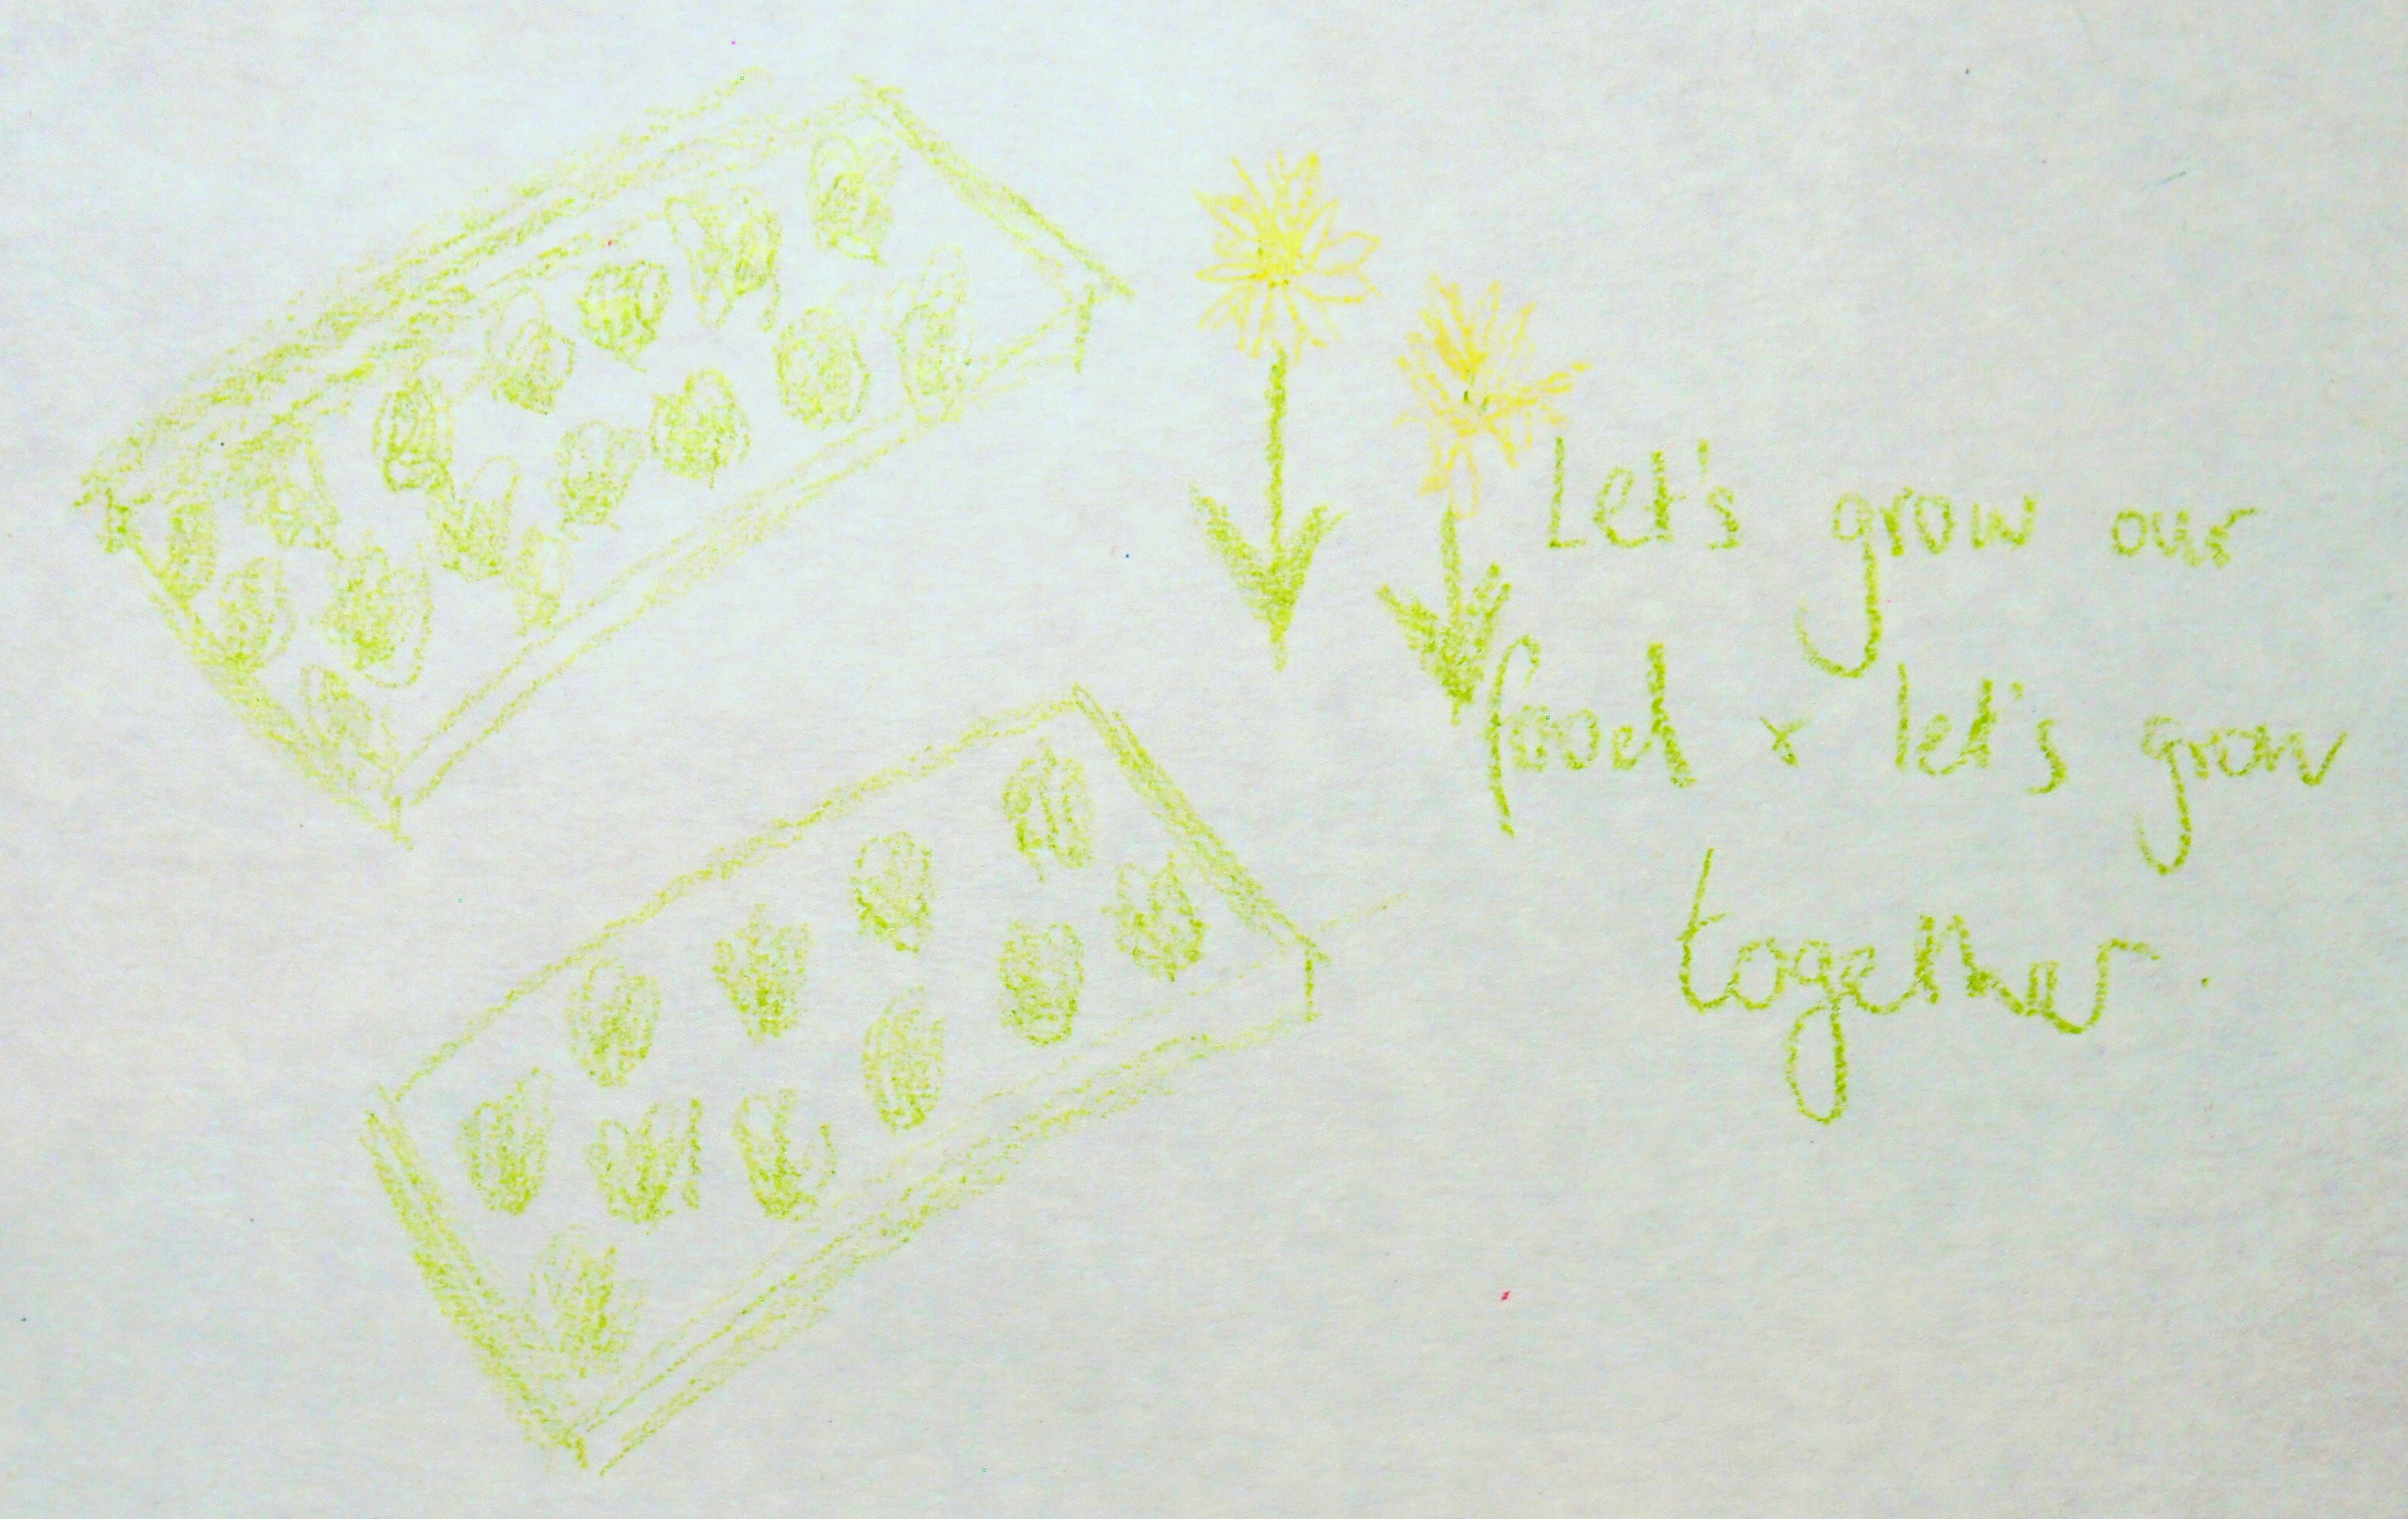 Let's grow our
food + let's grow
together.